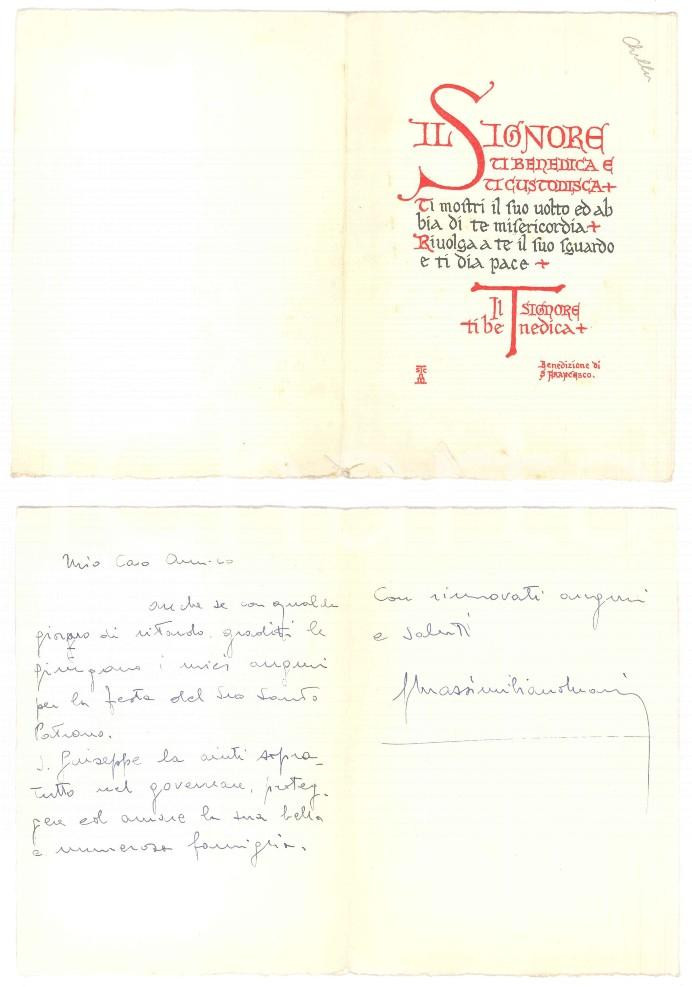 IL SIGNORE
TI BENEDICA E
TI CUSTODISCA+
Ti mostri il suo volto ed ab
bia di te misericordia+
Rivolga a te il suo sguardo
e ti dia pace +
Il SIGNORE
ti be T nedica+
Benedizione di
S FRANCESCO.
Mio Caro Amico
anche se con qualche
giorno di ritardo, graditi le
giungano i miei auguri
per la festa del Suo Santo
Patrono.
S. Giuseppe la aiuti sopra-
tutto nel governare, proteg-
gere ed amare la sua bella
e numerosa famiglia.
Con rinnovati auguri
e saluti